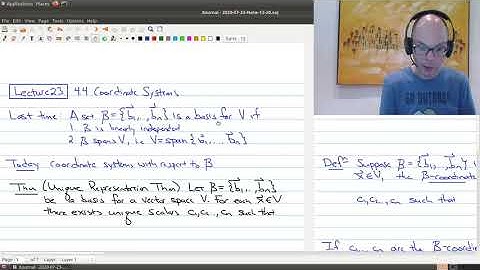 Applications Places
Xournal - 2020-07-23-Note-13-20.xoj
File Edit View Journal Tools Options Help
Lecture 23 4.4 Coordinate Systems
Last time: A set β = {b₁,..., bₙ} is a basis for V if
1. β is linearly independent
2. β spans V, i.e. V = span{b₁,..., bₙ}
Today: coordinate systems with respect to β
Thm (Unique Representation Thm) Let β = {b₁,..., bₙ}
be a basis for a vector space V. For each x ∈ V
there exists unique scalars c₁, c₂,.. cₙ such that
Defn: Suppose β = {b₁,..., bₙ} i
x ∈ V, the β-coordinate
c₁, c₂,.. cₙ such that
If c₁,.. cₙ are the β-coordin
GO OUTDO
Page 1 of 7 Layer: Layer 1